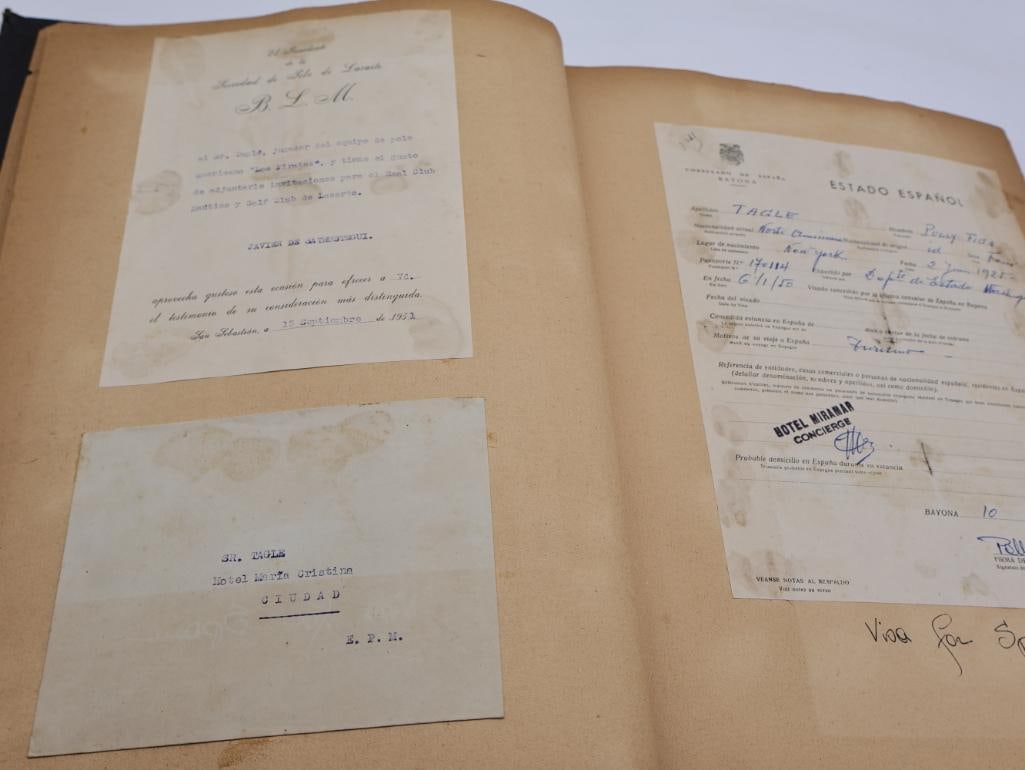 El Presidente
de la
Sociedad de Polo de Lasarte
B. L. M.
al Sr. Tagle, jugador del equipo de polo
americano "Los Piratas", y tiene el gusto
de adjuntarle invitaciones para el Real Club
Naútico y Golf Club de Lasarte.
JAVIER DE SATRUSTEGUI.
aprovecha gustoso esta ocasión para ofrecer a Vd.
el testimonio de su consideración más distinguida.
San Sebastián, a 15 Septiembre de 1951
SR. TAGLE
Hotel María Cristina
CIUDAD
E. P. M.
CONSULADO DE ESPAÑA
BAYONA
ESTADO ESPAÑOL
Apellidos TAGLE Nombre
Nacionalidad actual Norte Nacionalidad de origen id Sexo
Lugar de nacimiento New York Fecha 2 1925
Pasaporte N.º 170114 Expedido por Depte de Estado
En fecha 6/1/50 Visado concedido por la oficina consular de España en Bayona
Fecha del visado
Concedida estancia en España de días a contar de la fecha de entrada
Motivos de su viaje a España Turismo
Referencia de entidades, casas comerciales o personas de nacionalidad española, residentes en
(detallar denominación, nombres y apellidos, así como domicilio).
HOTEL MIRAMAR
CONCIERGE
Probable domicilio en España durante su estancia
BAYONA 10
FIRMA DE
VEANSE NOTAS AL RESPALDO
Voir notes au verso
Visa for Sp